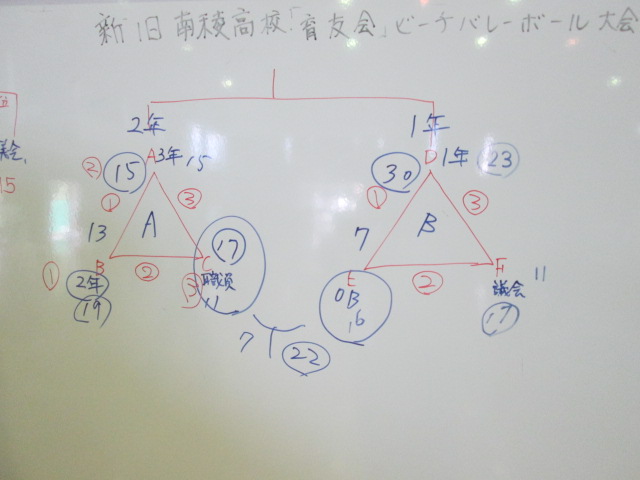 新旧南稜高校「育友会」ビーチバレーボール大会
2年 1年
A 3年 15
② ⑮
D 1年 ㉓
㉚
① ③
① ③
13 A
7 B
⑰
B ② C
E ② F
① 2年
③ 職員
11
OB
16
議会 11
⑲
⑰
7 ㉒
15